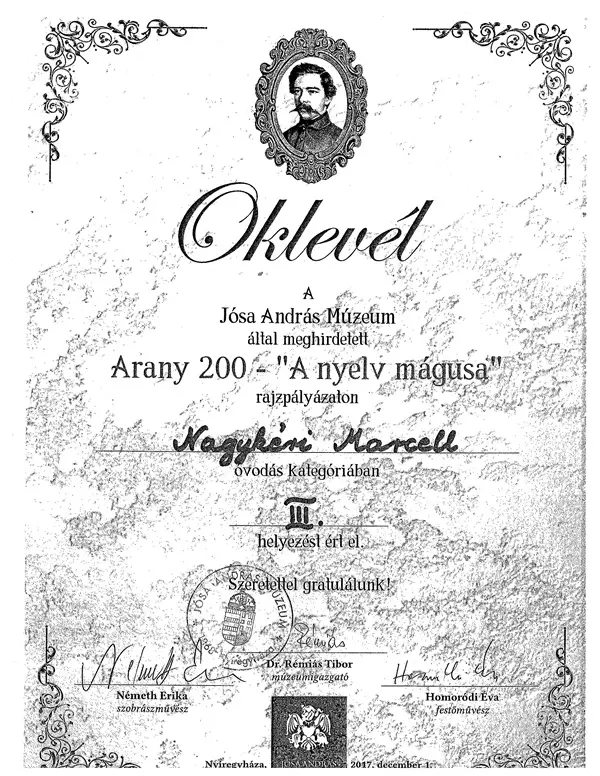 Oklevél
A
Jósa András Múzeum
által meghirdetett
Arany 200 - "A nyelv mágusa"
rajzpályázaton
Nagykéri Marcell
óvodás kategóriában
III.
helyezést ért el.
Szeretettel gratulálunk!
JÓSA ANDRÁS MÚZEUM
Németh Erika
szobrászművész
Dr. Rémiás Tibor
múzeumigazgató
Homoródi Éva
festőművész
JÓSA ANDRÁS
Nyíregyháza, 2017. december 1.